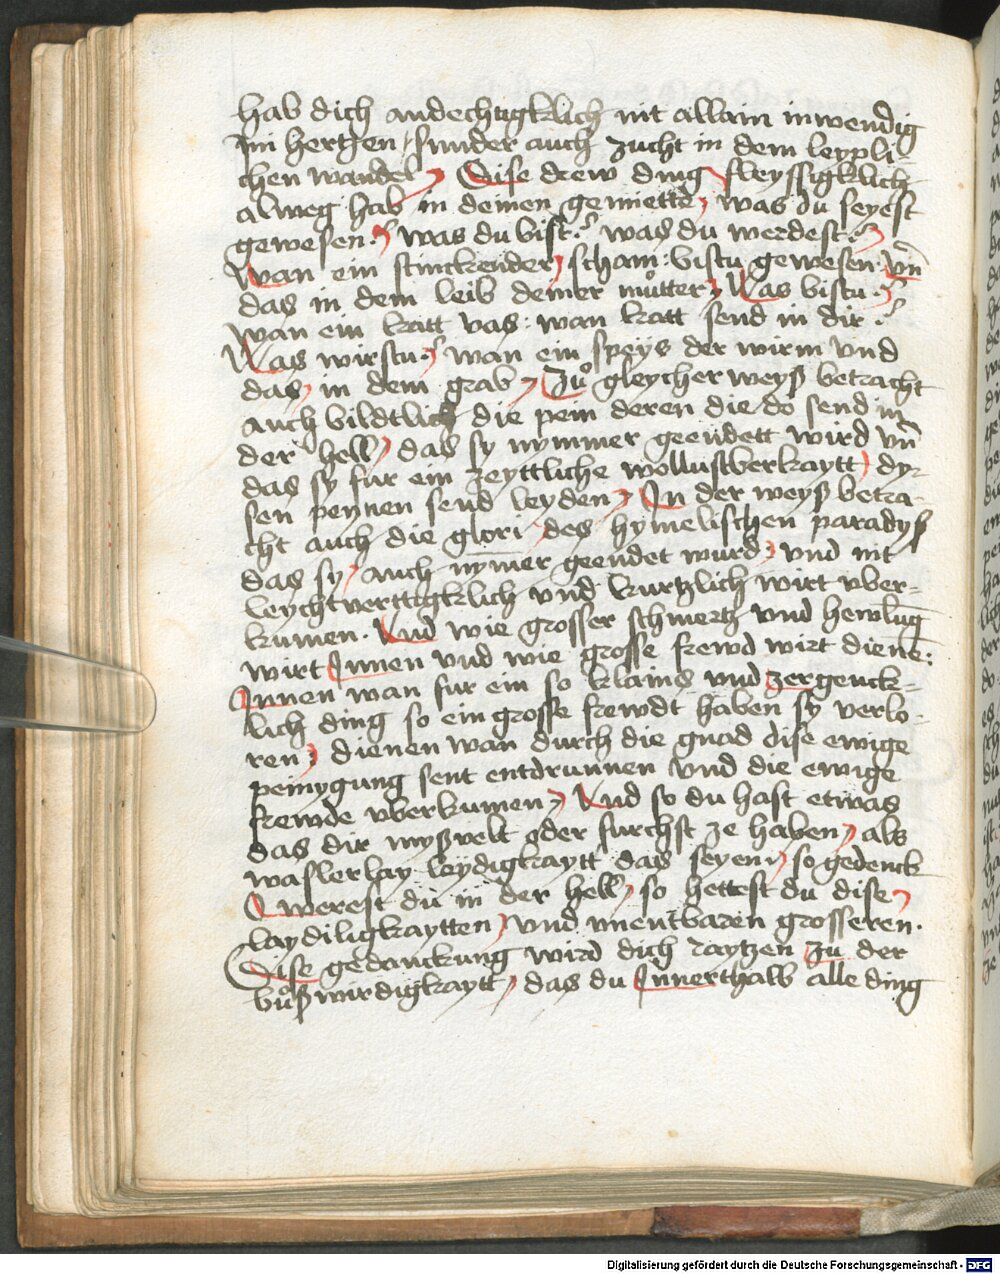 hab dich andechtigklich nit allain inwendig
Im hertzen / sunder auch zucht in dem leypli-
chen wandel / Dise drew ding fleyssigklich
alweg hab in deinen gemiette / was du seyest
gewesen ? was du bist ? was du werdest ?
Wan ein stinckender scham : bistu gewesen vn̄
das in dem leib deiner muͦtter / Was bistu ?
wan ein katt vas : wan katt send in dir ?
Was wirstu ? wan ein speys der wirm vnd
das / in dem grab / Zuͦ gleycher weyß betracht
auch bildtlich die pein deren die do send in
der hell / das sy nymmer geendett wird vn̄
das sy fur ein zeyttliche wollustberkaytt / dy-
sen peynen send leyden / In der weyß betra-
cht auch die glori des hymelischen paradyß
das sy / auch nym̄er geendet wurd / vnd nit
leychtverttigklich vnd kurtzlich wirt vber-
kumen . Vnd wie grosser schmertz vnd hewlūg
wirt Innen vnd wie grosse frewd wirt dienē :
Innen wan fur ein so klains vnd zergenck-
lich ding so ein grosse frewdt haben sy verlo-
ren / dienen wan durch die gnad dise ewige
peinygung sent entdrunnen vnd die ewige
frewde vberkumen / Vnd so du hast etwas
das dir myßvelt oder furchst ze haben / als
waslerlay leydigkaytt das seyen / so gedenck
werest du in der hell / so hettest du dise
laydiligkaytten / vnd unentbaren grosseren .
Dise gedanckung wird dich raytzen zu der
buͦßwirdigkaytt / das du Innerthalb alle ding
Digitalisierung gefördert durch die Deutsche Forschungsgemeinschaft - DFG